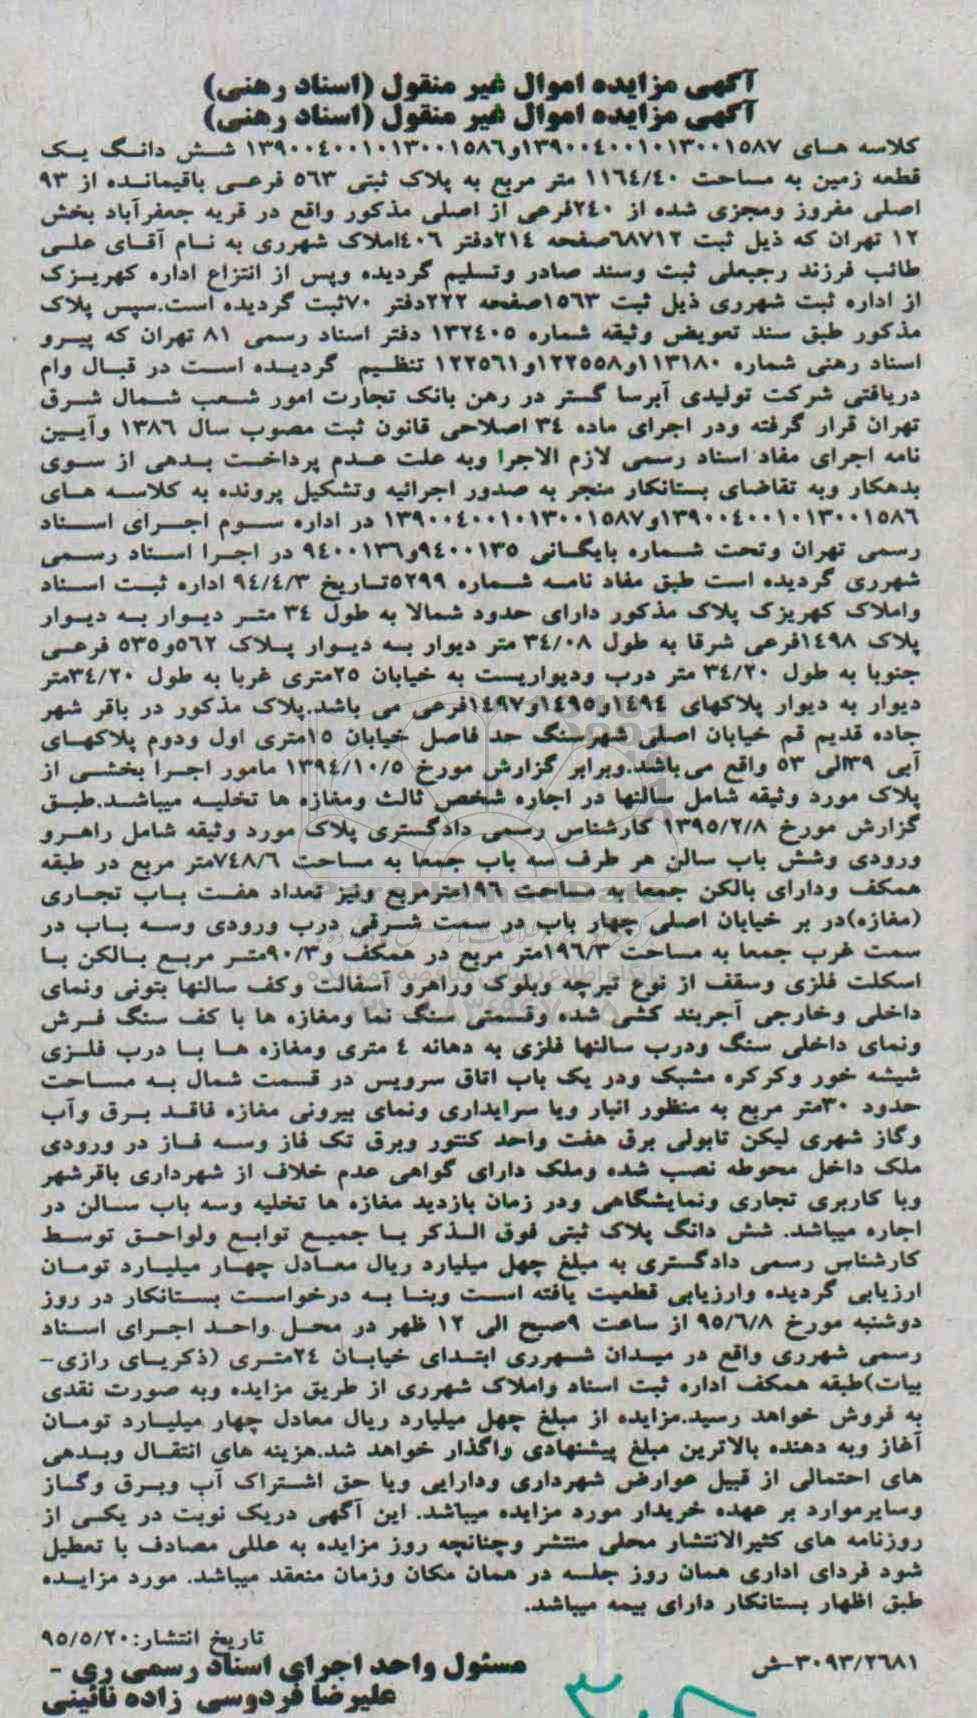 آگهی مزایده اموال غیر منقول (اسناد رهنی)
آگهی مزایده اموال غیر منقول (اسناد رهنی)
کلاسه های ۱۳۹۰۰٤۰۰۱۰۱۳۰۰۱۵۸۷و۱۳۹۰۰٤۰۰۱۰۱۳۰۰۱۵۸٦ شش دانگ یک
قطعه زمین به مساحت ۱۱٦٤/٤۰ متر مربع به پلاک ثبتی ۵٦۳ فرعی باقیمانده از ۹۳
اصلی مفروز ومجزی شده از ۲٤۰فرعی از اصلی مذکور واقع در قریه جعفرآباد بخش
۱۲ تهران که ذیل ثبت ٦۸۷۱۲صفحه ۲۱٤دفتر ٤۰٦املاک شهرری به نام آقای علی
طالب فرزند رجبعلی ثبت وسند صادر وتسلیم گردیده وپس از انتزاع اداره کهریزک
از اداره ثبت شهرری ذیل ثبت ۱۵٦۳صفحه ۲۲۲دفتر ۷۰ثبت گردیده است.سپس پلاک
مذکور طبق سند تعویض وثیقه شماره ۱۳۲٤۰۵ دفتر اسناد رسمی ۸۱ تهران که پیرو
اسناد رهنی شماره ۱۱۳۱۸۰و۱۲۲۵۵۸و۱۲۲۵٦۱ تنظیم گردیده است در قبال وام
دریافتی شرکت تولیدی آبرسا گستر در رهن بانک تجارت امور شعب شمال شرق
تهران قرار گرفته ودر اجرای ماده ۳٤ اصلاحی قانون ثبت مصوب سال ۱۳۸٦ وآیین
نامه اجرای مفاد اسناد رسمی لازم الاجرا وبه علت عدم پرداخت بدهی از سوی
بدهکار وبه تقاضای بستانکار منجر به صدور اجرائیه وتشکیل پرونده به کلاسه های
۱۳۹۰۰٤۰۰۱۰۱۳۰۰۱۵۸٦و۱۳۹۰۰٤۰۰۱۰۱۳۰۰۱۵۸۷ در اداره سوم اجرای اسناد
رسمی تهران وتحت شماره بایگانی ۹٤۰۰۱۳۵و۹٤۰۰۱۳٦ در اجرا اسناد رسمی
شهرری گردیده است طبق مفاد نامه شماره ۵۲۹۹تاریخ ۹٤/٤/۳ اداره ثبت اسناد
واملاک کهریزک پلاک مذکور دارای حدود شمالا به طول ۳٤ متر دیوار به دیوار
پلاک ۱٤۹۸فرعی شرقا به طول ۳٤/۰۸ متر دیوار به دیوار پلاک ۵٦۲و۵۳۵ فرعی
جنوبا به طول ۳٤/۲۰ متر درب ودیواریست به خیابان ۲۵متری غربا به طول ۳٤/۲۰متر
دیوار به دیوار پلاکهای ۱٤۹٤و۱٤۹۵و۱٤۹۷فرعی می باشد.پلاک مذکور در باقر شهر
جاده قدیم قم خیابان اصلی شهرسنگ حد فاصل خیابان ۱۵متری اول ودوم پلاکهای
آبی ۳۹الی ۵۳ واقع می‌باشد.وبرابر گزارش مورخ ۱۳۹٤/۱۰/۵ مامور اجرا بخشی از
پلاک مورد وثیقه شامل سالنها در اجاره شخص ثالث ومغازه ها تخلیه میباشد.طبق
گزارش مورخ ۱۳۹۵/۲/۸ کارشناس رسمی دادگستری پلاک مورد وثیقه شامل راهرو
ورودی وشش باب سالن هر طرف سه باب جمعا به مساحت ۷٤۸/٦متر مربع در طبقه
همکف ودارای بالکن جمعا به مساحت ۱۹٦مترمربع ونیز تعداد هفت باب تجاری
(مغازه)در بر خیابان اصلی چهار باب در سمت شرقی درب ورودی وسه باب در
سمت غرب جمعا به مساحت ۱۹٦/۳متر مربع در همکف و۹۰/۳متر مربع بالکن با
اسکلت فلزی وسقف از نوع تیرچه وبلوک وراهرو آسفالت وکف سالنها بتونی ونمای
داخلی وخارجی آجربند کشی شده وقسمتی سنگ نما ومغازه ها با کف سنگ فرش
ونمای داخلی سنگ ودرب سالنها فلزی به دهانه ٤ متری ومغازه ها با درب فلزی
شیشه خور وکرکره مشبک ودر یک باب اتاق سرویس در قسمت شمال به مساحت
حدود ۳۰متر مربع به منظور انبار ویا سرایداری ونمای بیرونی مغازه فاقد برق وآب
وگاز شهری لیکن تابولی برق هفت واحد کنتور وبرق تک فاز وسه فاز در ورودی
ملک داخل محوطه نصب شده وملک دارای گواهی عدم خلاف از شهرداری باقرشهر
وبا کاربری تجاری ونمایشگاهی ودر زمان بازدید مغازه ها تخلیه وسه باب سالن در
اجاره میباشد. شش دانگ پلاک ثبتی فوق الذکر با جمیع توابع ولواحق توسط
کارشناس رسمی دادگستری به مبلغ چهل میلیارد ریال معادل چهار میلیارد تومان
ارزیابی گردیده وارزیابی قطعیت یافته است وبنا به درخواست بستانکار در روز
دوشنبه مورخ ۹۵/٦/۸ از ساعت ۹صبح الی ۱۲ ظهر در محل واحد اجرای اسناد
رسمی شهرری واقع در میدان شهرری ابتدای خیابان ۲٤متری (ذکریای رازی-
بیات)طبقه همکف اداره ثبت اسناد واملاک شهرری از طریق مزایده وبه صورت نقدی
به فروش خواهد رسید.مزایده از مبلغ چهل میلیارد ریال معادل چهار میلیارد تومان
آغاز وبه دهنده بالاترین مبلغ پیشنهادی واگذار خواهد شد.هزینه های انتقال وبدهی
های احتمالی از قبیل عوارض شهرداری ودارایی ویا حق اشتراک آب وبرق وگاز
وسایرموارد بر عهده خریدار مورد مزایده میباشد. این آگهی دریک نوبت در یکی از
روزنامه های کثیرالانتشار محلی منتشر وچنانچه روز مزایده به عللی مصادف با تعطیل
شود فردای اداری همان روز جلسه در همان مکان وزمان منعقد میباشد. مورد مزایده
طبق اظهار بستانکار دارای بیمه میباشد.
تاریخ انتشار:۹۵/۵/۲۰
۳۰۹۳/۲٦۸۱-ش
مسئول واحد اجرای اسناد رسمی ری -
علیرضا فردوسی زاده نائینی